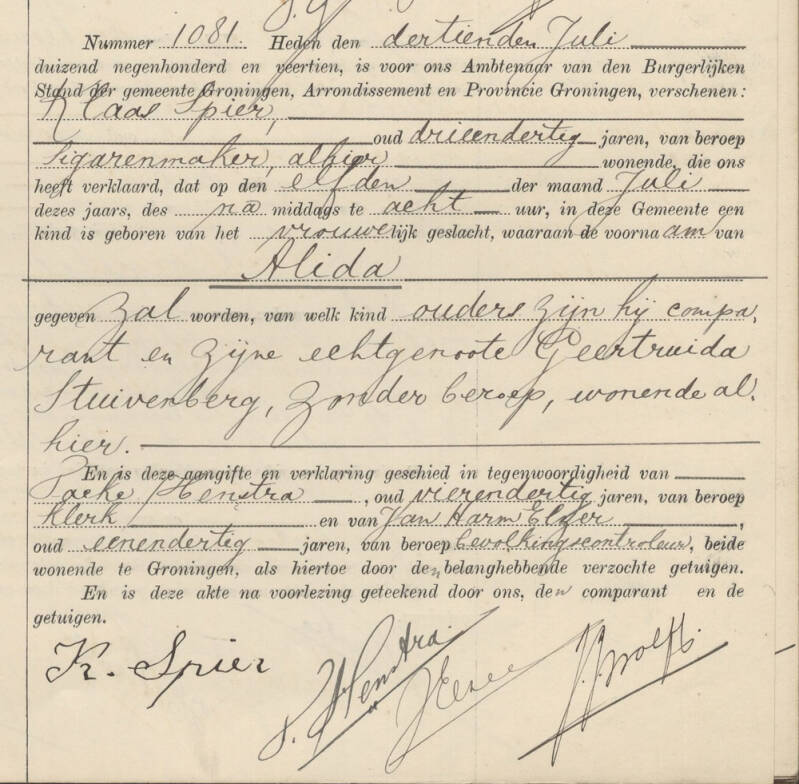 Nummer 1081. Heden den dertienden Juli
duizend negenhonderd en veertien, is voor ons Ambtenaar van den Burgerlijken
Stand der gemeente Groningen, Arrondissement en Provincie Groningen, verschenen:
Klaas Spier,
oud drieendertig jaren, van beroep
sigarenmaker, alhier wonende, die ons
heeft verklaard, dat op den elfden der maand Juli
dezes jaars, des na middags te acht uur, in deze Gemeente een
kind is geboren van het vrouwelijk geslacht, waaraan de voornaam van
Alida
gegeven zal worden, van welk kind ouders zijn hij compa,
rant en zijne echtgenoote Geertruida
Stuivenberg, zonder beroep, wonende al.
hier.
En is deze aangifte en verklaring geschied in tegenwoordigheid van
Henstra, oud vierendertig jaren, van beroep
klerk en van Jan Harm,
oud eenendertig jaren, van beroep bevolkingscontroleur, beide
wonende te Groningen, als hiertoe door den belanghebbende verzochte getuigen.
En is deze akte na voorlezing geteekend door ons, den comparant en de
getuigen.
K. Spier
P. Henstra.